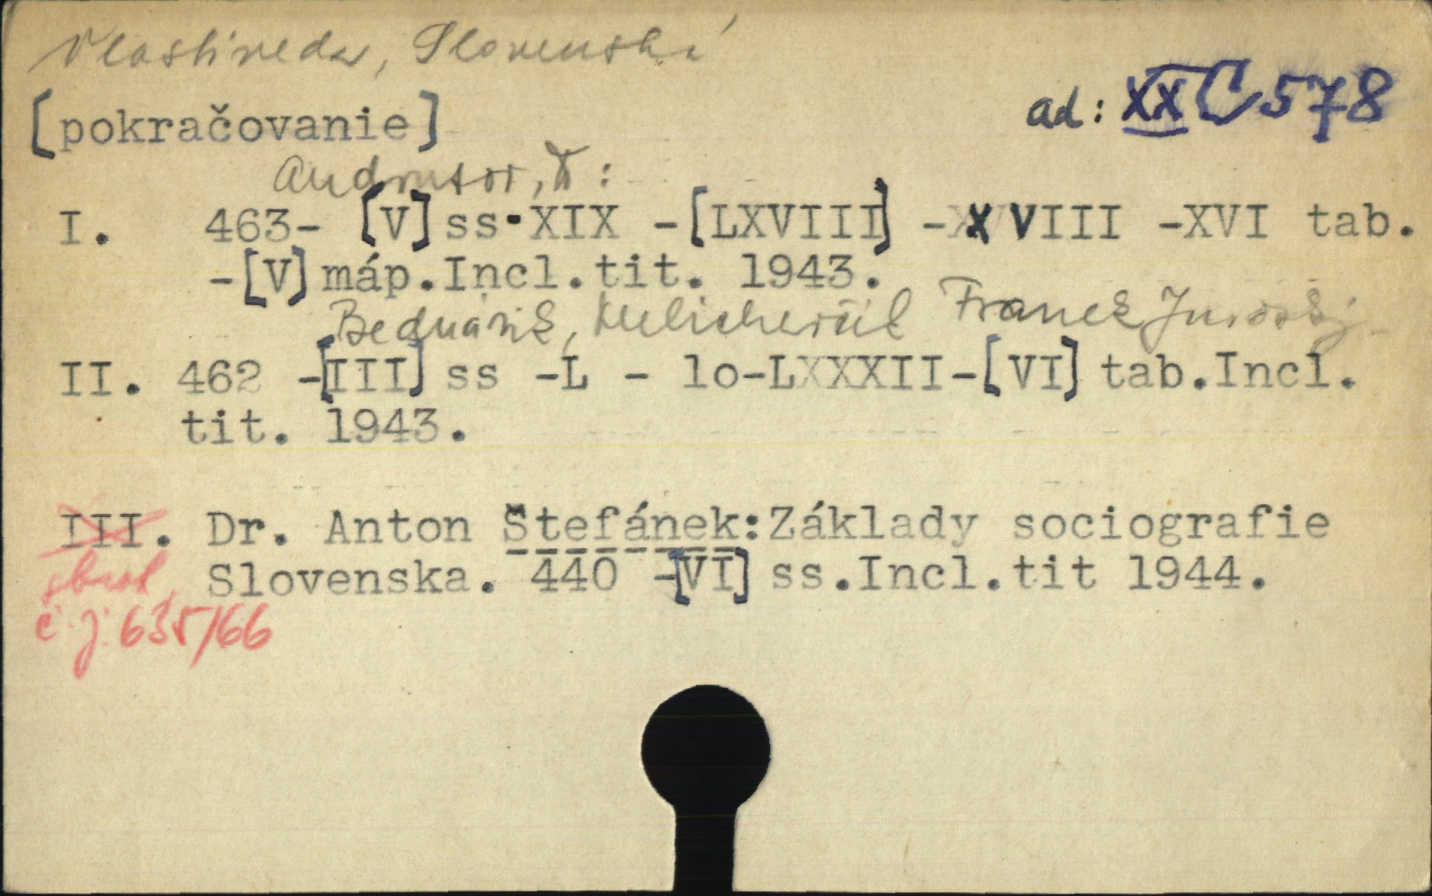 Vlastiveda, Slovenská
[pokračovanie]
ad: XX C 578
Andrusov, D:
I. 463- [V] ss-XIX -[LXVIII] -XVIII -XVI tab.
-[V] máp.Incl.tit. 1943.
Bednárik, Melicherčík Franek
II. 462 -[III] ss -L - lo-LXXXII-[VI] tab.Incl.
tit. 1943.
III. Dr. Anton Štefánek:Základy sociografie
Slovenska. 440 -[VI] ss.Incl.tit 1944.
č.j. 635/66